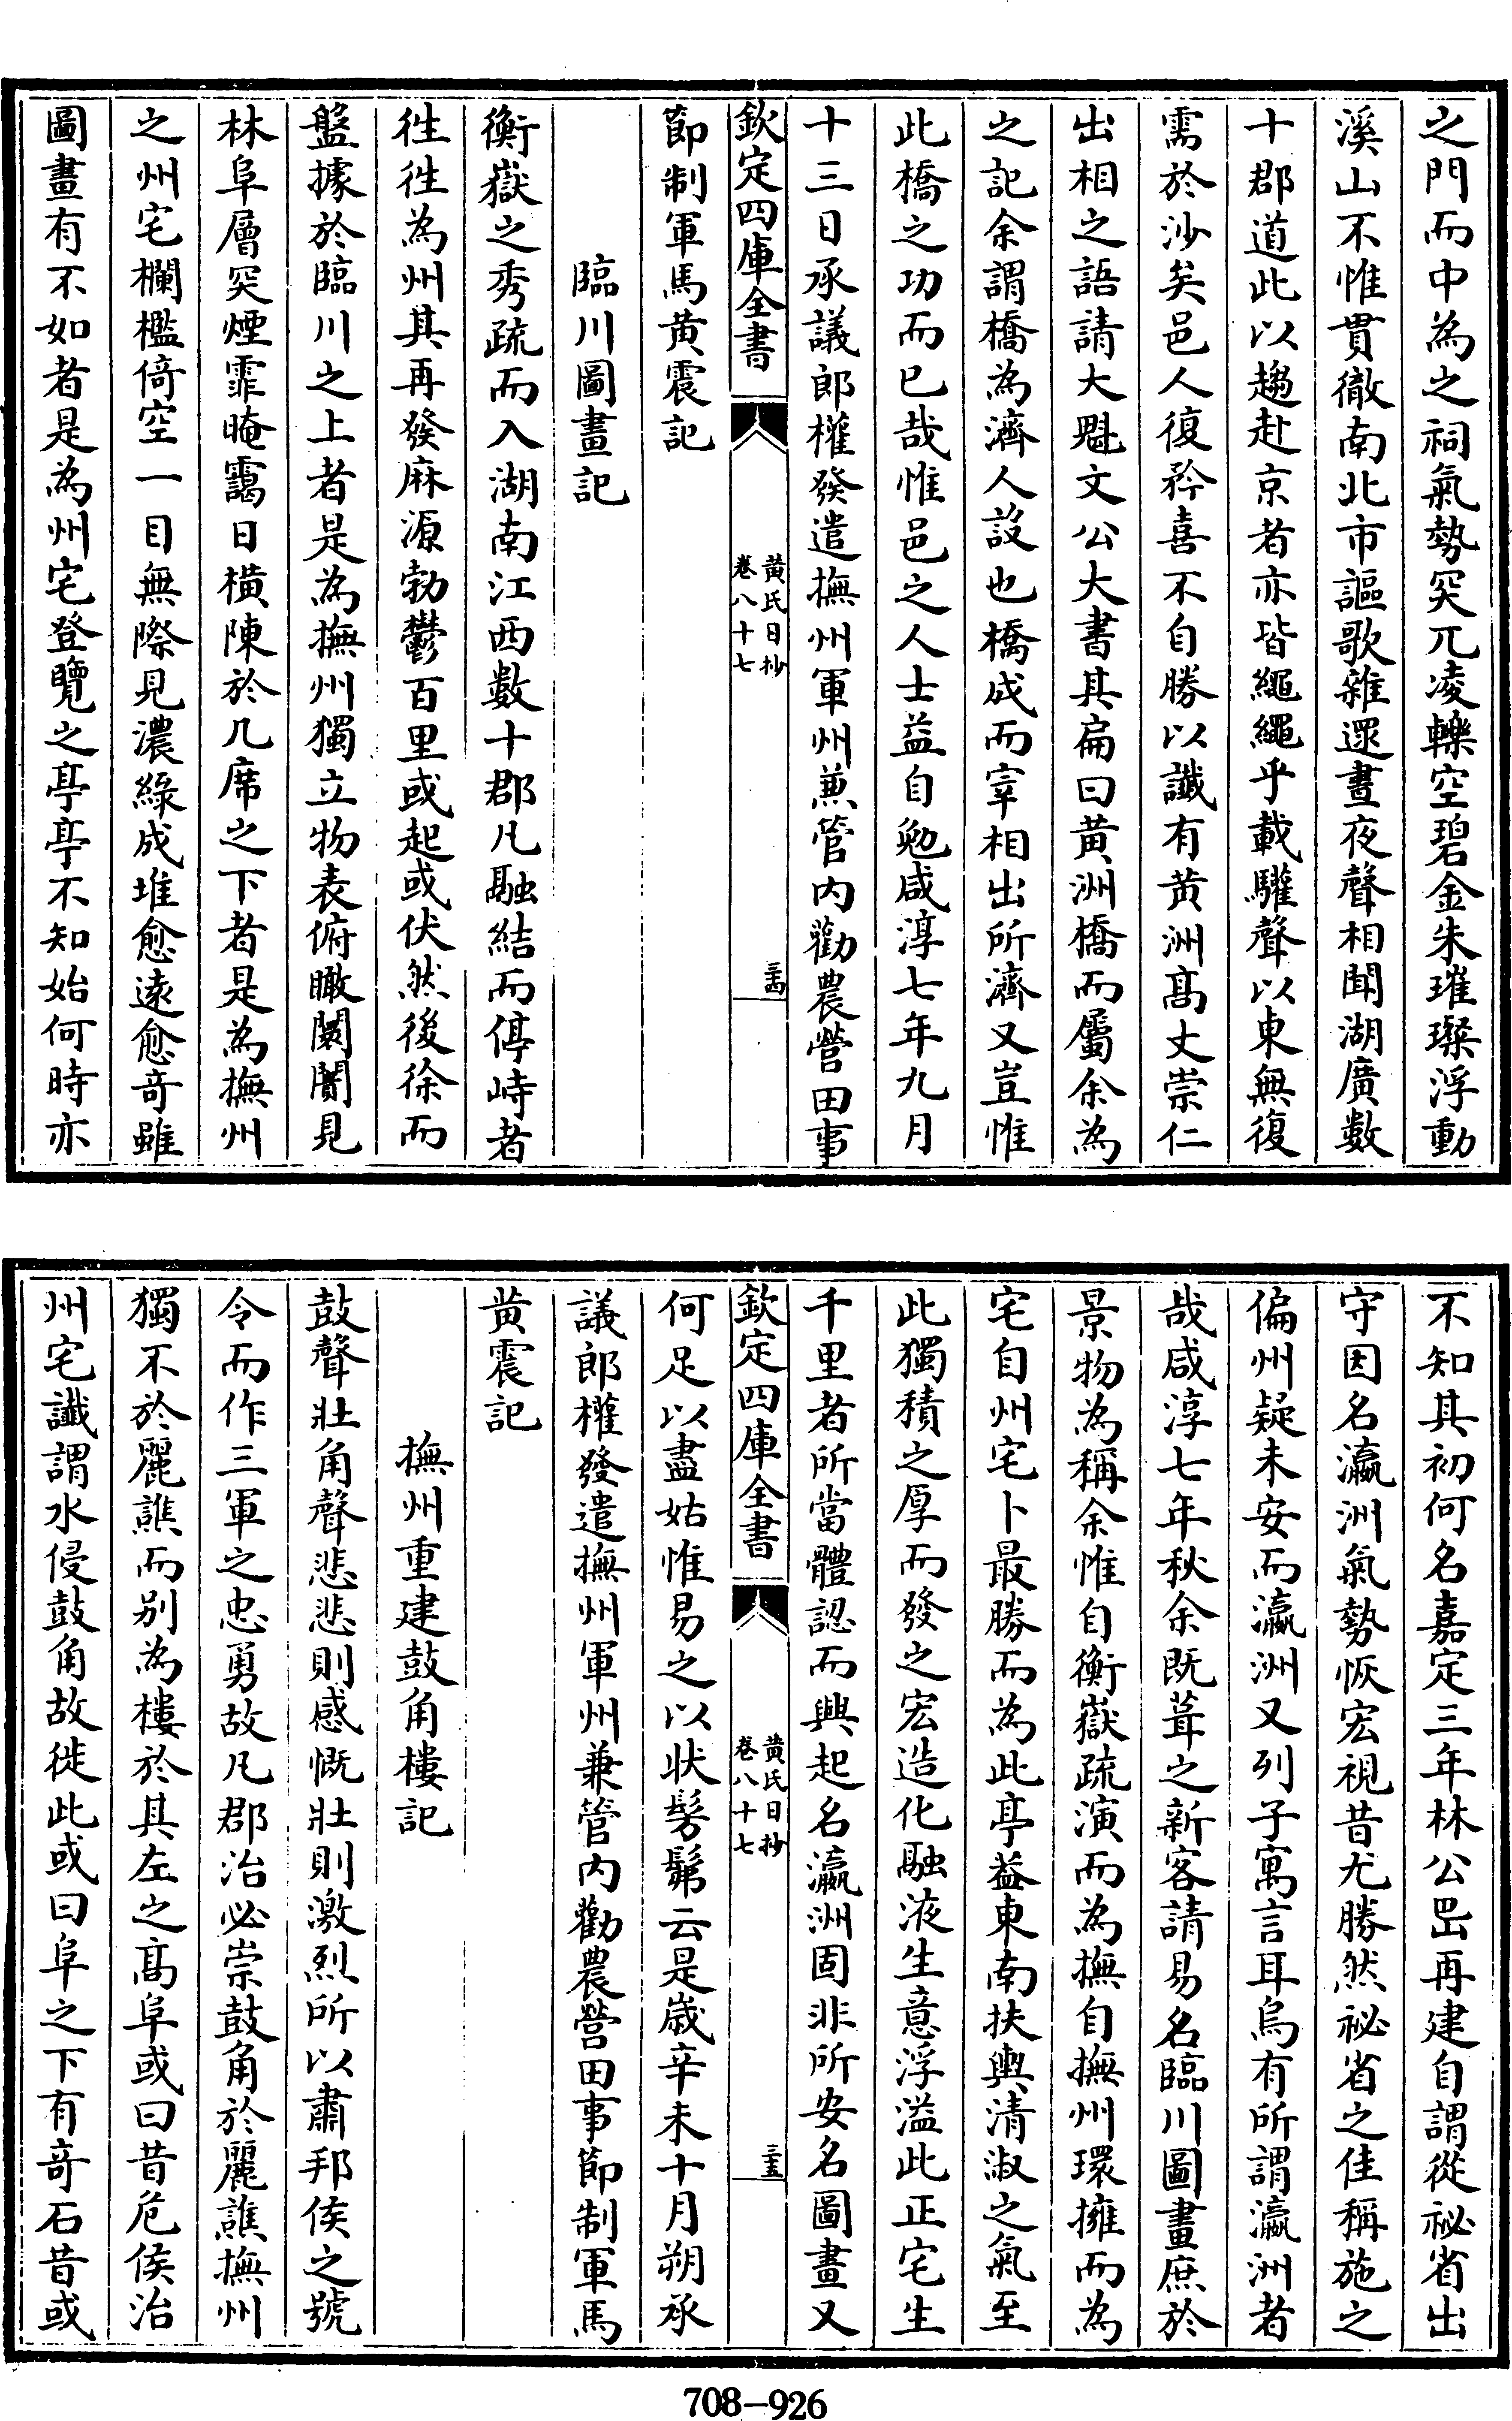 之門而中為之祠氣勢突兀凌轢空碧金朱璀璨浮動
溪山不惟貫徹南北市謳歌雜遝晝夜聲相聞湖廣數
十郡道此以趨赴京者亦皆繩繩乎載驩聲以東無復
需於沙矣邑人復矜喜不自勝以讖有黄洲髙丈崇仁
出相之語請大魁文公大書其扁曰黄洲橋而屬余為
之記余謂橋為濟人設也橋成而宰相出所濟又豈惟
此橋之功而已哉惟邑之人士益自勉咸淳七年九月
十三日承議郎權發遣撫州軍州兼管内勸農營田事
欽定四庫全書
黄氏日抄
卷八十七
三四
節制軍馬黄震記
臨川圖畫記
衡嶽之秀疏而入湖南江西數十郡凡融結而停峙者
徃徃為州其再發麻源勃鬱百里或起或伏然後徐而
盤據於臨川之上者是為撫州獨立物表俯瞰闤闠見
林阜層突煙霏晻靄日橫陳於几席之下者是為撫州
之州宅欄檻倚空一目無際見濃綠成堆愈遠愈竒雖
圖畫有不如者是為州宅登覽之亭亭不知始何時亦
不知其初何名嘉定三年林公岊再建自謂從祕省出
守因名瀛洲氣勢恢宏視昔尤勝然祕省之佳稱施之
偏州疑未安而瀛洲又列子寓言耳烏有所謂瀛洲者
哉咸淳七年秋余既葺之新客請易名臨川圖畫庶於
景物為稱余惟自衡嶽疏演而為撫自撫州環擁而為
宅自州宅卜最勝而為此亭葢東南扶輿清淑之氣至
此獨積之厚而發之宏造化融液生意浮溢此正宅生
千里者所當體認而興起名瀛洲固非所安名圖畫又
欽定四庫全書
黄氏日抄
卷八十七
三五
何足以盡姑惟易之以狀髣髴云是歲辛未十月朔承
議郎權發遣撫州軍州兼管内勸農營田事節制軍馬
黄震記
撫州重建鼓角樓記
鼓聲壯角聲悲悲則感慨壯則激烈所以肅邦侯之號
令而作三軍之忠勇故凡郡治必崇鼓角於麗譙撫州
獨不於麗譙而别為樓於其左之髙阜或曰昔危侯治
州宅讖謂水侵鼓角故徙此或曰阜之下有竒石昔或
708-926